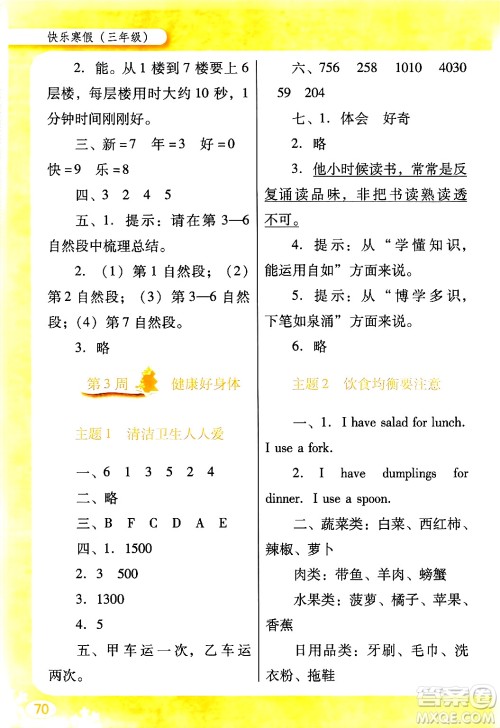 快乐寒假（三年级）
2．能。从 1 楼到 7 楼要上 6
层楼，每层楼用时大约 10 秒，1
分钟时间刚刚好。
三、新＝7 年＝3 寒＝4 假＝0
快＝9 乐＝8
四、3 2 4 5
五、1．提示：请在第 3—6
自然段中梳理总结。
2．（1）第 1 自然段；（2）
第 2 自然段；（3）第 3—6 自然
段；（4）第 7 自然段。
3．略
第 3 周 健康好身体
主题 1 清洁卫生人人爱
一、6 1 3 5 2 4
二、略
三、B C F G D A E
四、1．1500
2．3 500
3．1300
4．略
五、甲车运一次，乙车运
两次。
六、756 258 1010 4030
59 204
七、1．体会 好奇
2．略
3．他小时候读书，常常是反
复诵读品味，非把书读熟读透
不可。
4．提示：从“学懂知识，
能运用自如”方面来说。
5．提示：从“博学多识，
下笔如泉涌”方面来说。
6．略
主题 2 饮食均衡要注意
一、1．I have salad for lunch.
I use a fork.
2．I have dumplings for
dinner. I use a spoon.
二、蔬菜类：白菜、西红柿、
辣椒、萝卜
肉类：带鱼、羊肉、螃蟹
水果类：菠萝、橘子、苹果、
香蕉
日用品类：牙刷、毛巾、洗
衣粉、拖鞋
70
答案圈
MXQE.COM